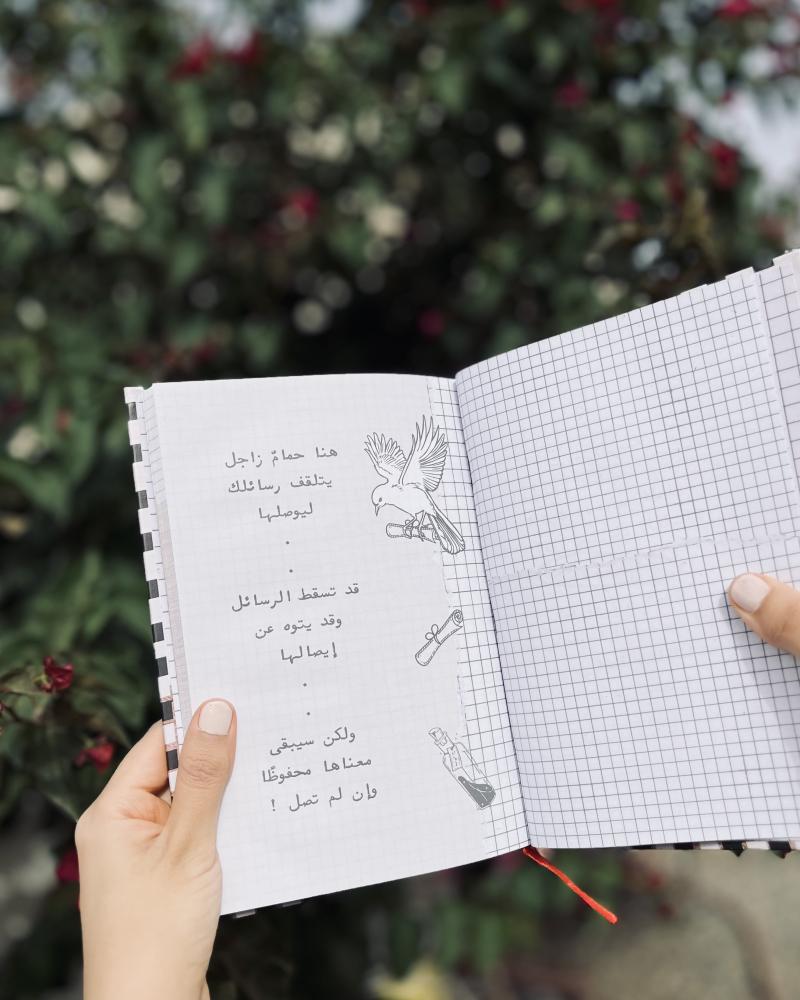 هنا حمامٌ زاجل
يتلقف رسائلك
ليوصلها
.
.
قد تسقط الرسائل
وقد يتوه عن
إيصالها
.
.
ولكن سيبقى
معناها محفوظًا
وإن لم تصل !